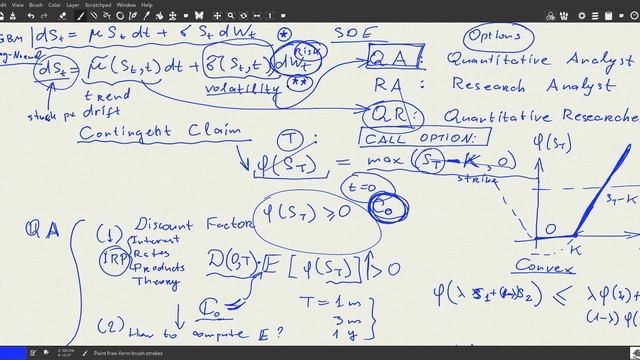 File Edit View Insert Object Layer Scrapbook Page Window Help
GBM
dS_t = μ S_t dt + σ S_t dW_t *
SDE
Options
dS_t = μ(S_t,t) dt + σ(S_t,t) dW_t
Risk
(**)
trend
drift
volatility
QA : Quantitative Analyst
RA : Research Analyst
QR : Quantitative Researche
Contingent Claim
T :
CALL OPTION:
φ(S_T) = max(S_T - K, 0)
strike
φ(S_T)
S_T-K
0
K
Convex
t=0
C_0
φ(S_T) ≥ 0
QA
(1) Discount Factor
IRP
Interest
Rates
Products
Theory
D(0,T) · E [φ(S_T)] > 0
C_0
T = 1m
3m
1y
(2) How to compute E ?
φ(λ S_1 + (1-λ)S_2) ≤ λφ(S_1)+
(1-λ) φ(
Paint free-form brush strokes